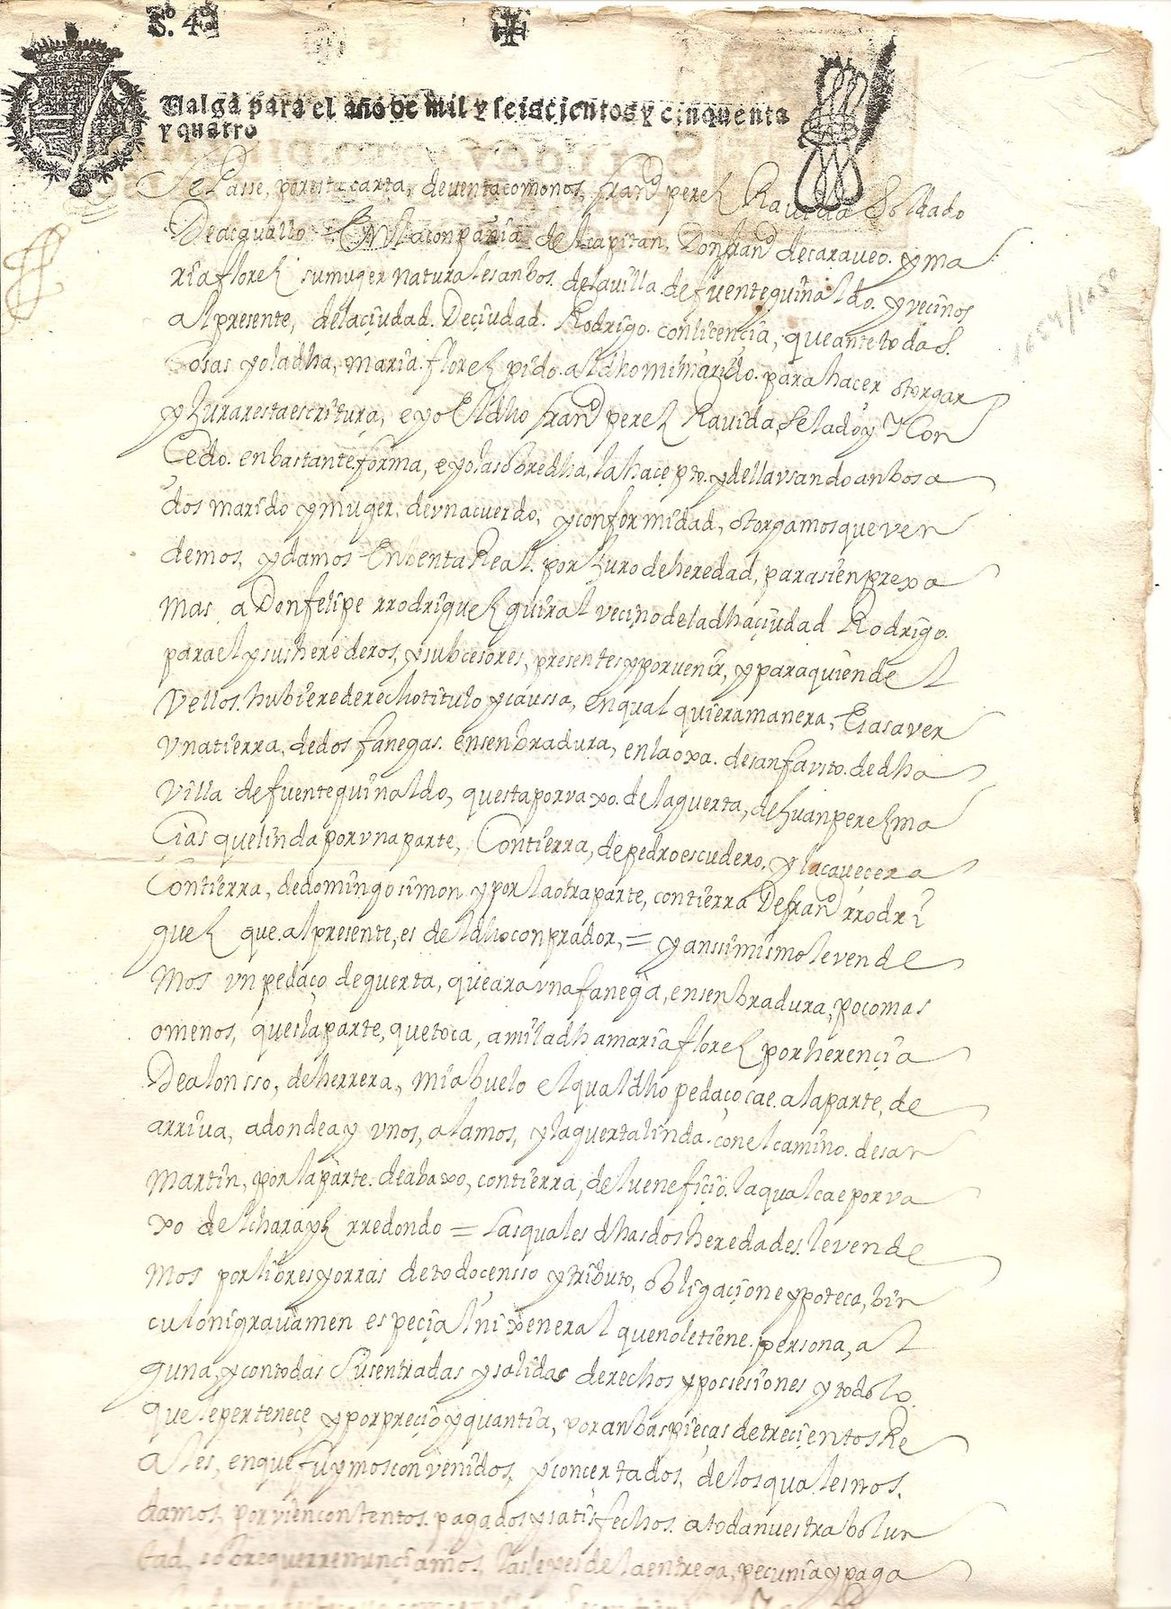 S. 4º
Valga para el año de mil y seiscientos y cinquenta
y quatro
1654/1650
Sepasse, por esta carta, de venta como nos, franᵈ perez Ravida Soldado
De acavallo En la conpañia del capitan Don franᵈ de caraveo. y ma
ria florez su muger naturales anbos de la villa de fuenteguinaldo. y vecinos
al presente, de la çiudad. De çiudad. Rodrigo. con licençia, que ante todas.
Cosas yo la dha, maria florez pido al dho mi marido para hacer otorgar
y Jurar esta escritura, e yo El dho franᵈ perez Ravida, Se la doy y Con
Cedo en bastante forma, e yo la sobredha, la hacepto. y della usando anbos a
dos marido y muger, de un acuerdo, y conformidad, otorgamos que ven
demos, y damos En benta Real por Juro de heredad, para sienpre xa
mas, a Don felipe rrodriguez guiral veçino de la dha çiudad Rodrigo.
para el y sus herederos, y subcesores, presentes y por venir, y para quien del
Vellos. hubiere derecho titulo y caussa, en qual quiera manera, Es a saver
Una tierra, de dos fanegas. en senbradura, en la oxa. de san fausto. de dha
Villa de fuenteguinaldo, questa por vaxo. de la guerta, de Juan perez ma
Çias que linda por una parte, Con tierra, de pedro escudero, y la caveçera
Con tierra, de domingo simon y por la otra parte, con tierra De franᵈ rrodri
guez que al presente, es del dho conprador, = y anssimismo le vende
mos un pedaço de guerta, que ara una fanega, en senbradura, poco mas
o menos, ques la parte, que toca, a mi la dha maria florez por herençia
De alonsso, de herrera, mi abuelo el qual dho pedaço cae a la parte, de
arriva, adonde ay unos, alamos, y la guerta linda. con el camino. de san
Martin, por la parte. de abaxo, con tierra, del venefiçio. la qual cae por va
xo del charayz rredondo = las quales dhas dos heredades le vende
mos por libres y orras de todo censso y tributo, obligaçion e ypoteca, bin
culo ni gravamen espeçial ni xeneral que no le tiene persona, al
guna, y con todas Sus entradas y salidas derechos y possesiones y todo lo.
que le perteneçe y por preçio y quantia, por anbas pieças de treçientos Re
ales, en que fuymos convenidos, y conçertados, de los quales nos.
damos, por vien contentos pagados y satisfechos a toda nuestra bolun
tad, sobre que rrenunçiamos, las leyes de la entrega, pecunia y paga